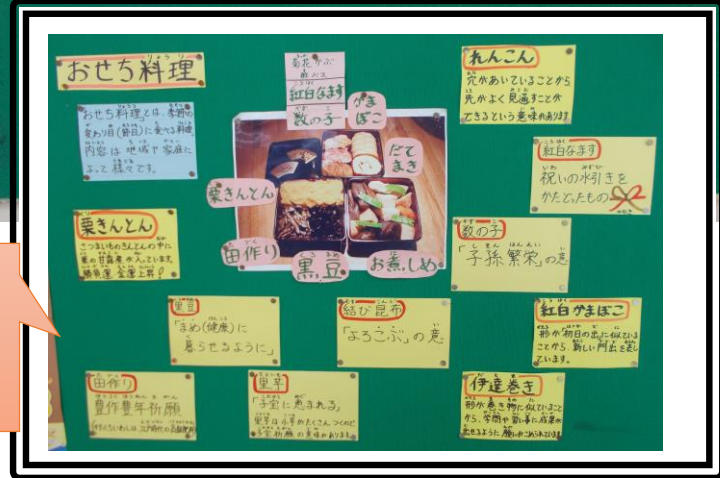 おせち料理
おせち料理とは、季節の
変わり目(節目)に食べる料理
内容は地域や家庭に
よって様々です。
栗きんとん
さつまいものきんとんの中に
栗の甘露煮が入っています。
勝負運 金運上昇!
菊花かぶ
紅白なます
数の子
かま
ぼこ
だて
まき
栗きんとん
田作り
黒豆
お煮しめ
れんこん
穴があいていることから
先がよく見通すことが
できるという意味があります
紅白なます
祝いの水引きを
かたどったもの
数の子
「子孫繁栄」の意
黒豆
「まめ(健康)に
暮らせるように」
結び昆布
「よろこぶ」の意
紅白かまぼこ
形が「初日の出」に似ている
ことから、新しい門出を表し
ています。
田作り
豊作豊年祈願
里芋
「子宝に恵まれる」
里芋は小芋がたくさんつくので
子宝祈願の意味があります。
伊達巻き
形が巻き物に似ていること
から、学問や習い事に成果が
出せるように願いがこめられています